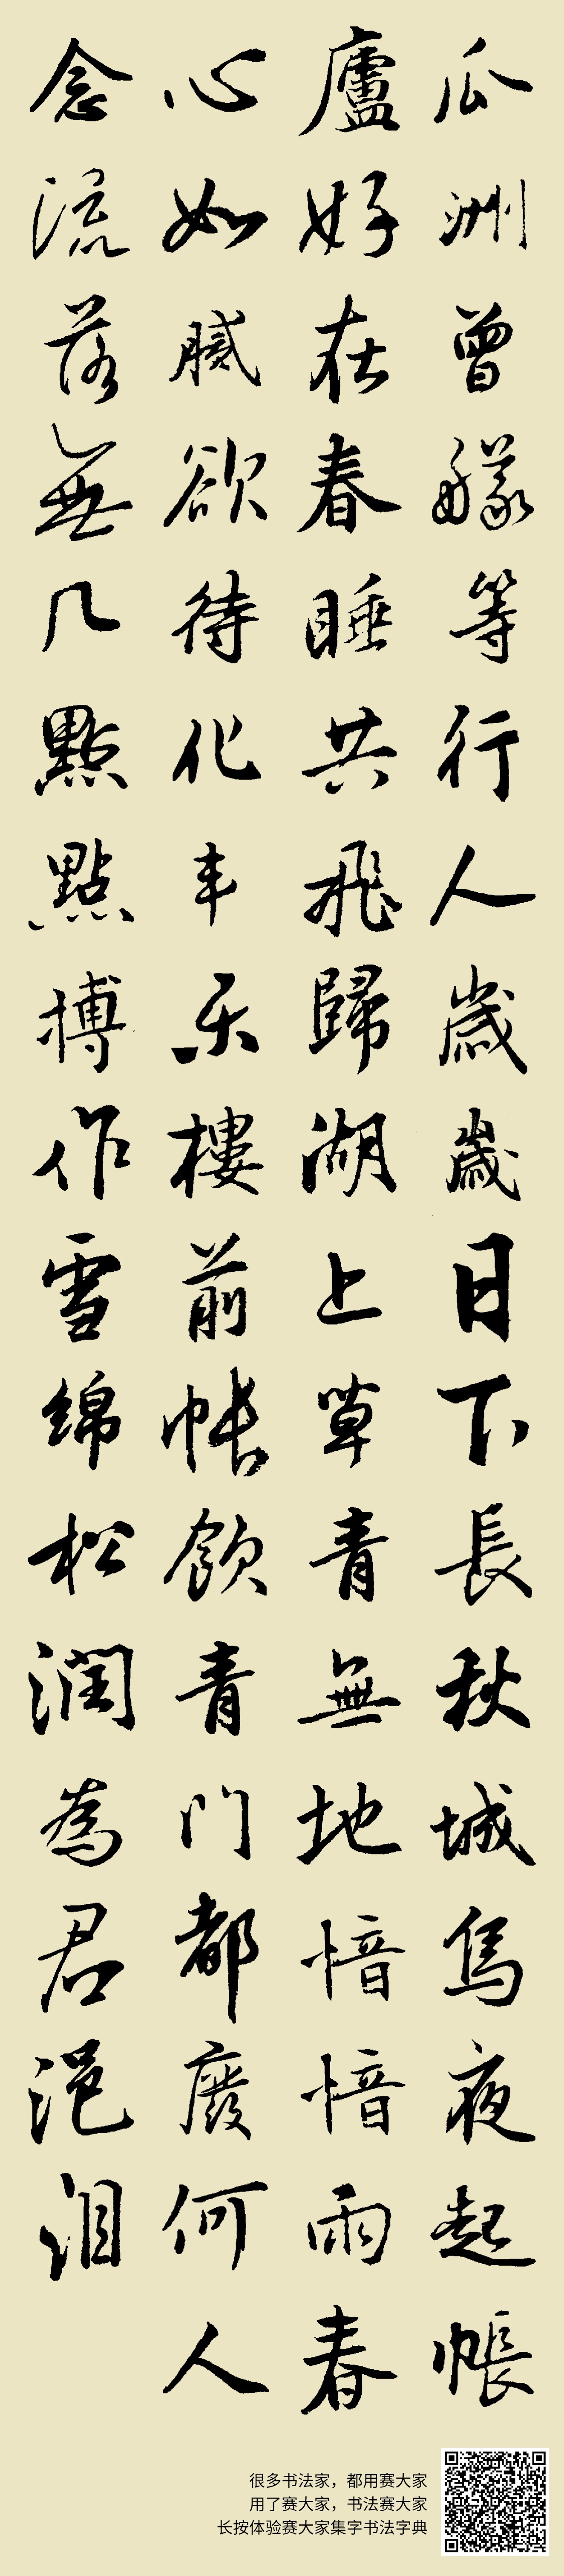 瓜洲曾艤等行人歲歲日下長秋城烏夜起帳
廬好在春睡共飛歸湖上草青無地愔愔雨春
心如膩欲待化丰乐樓前帐飲青门都廢何人
念流落無几點點搏作雪绵松润為君浥泪
很多书法家，都用赛大家
用了赛大家，书法赛大家
长按体验赛大家集字书法字典